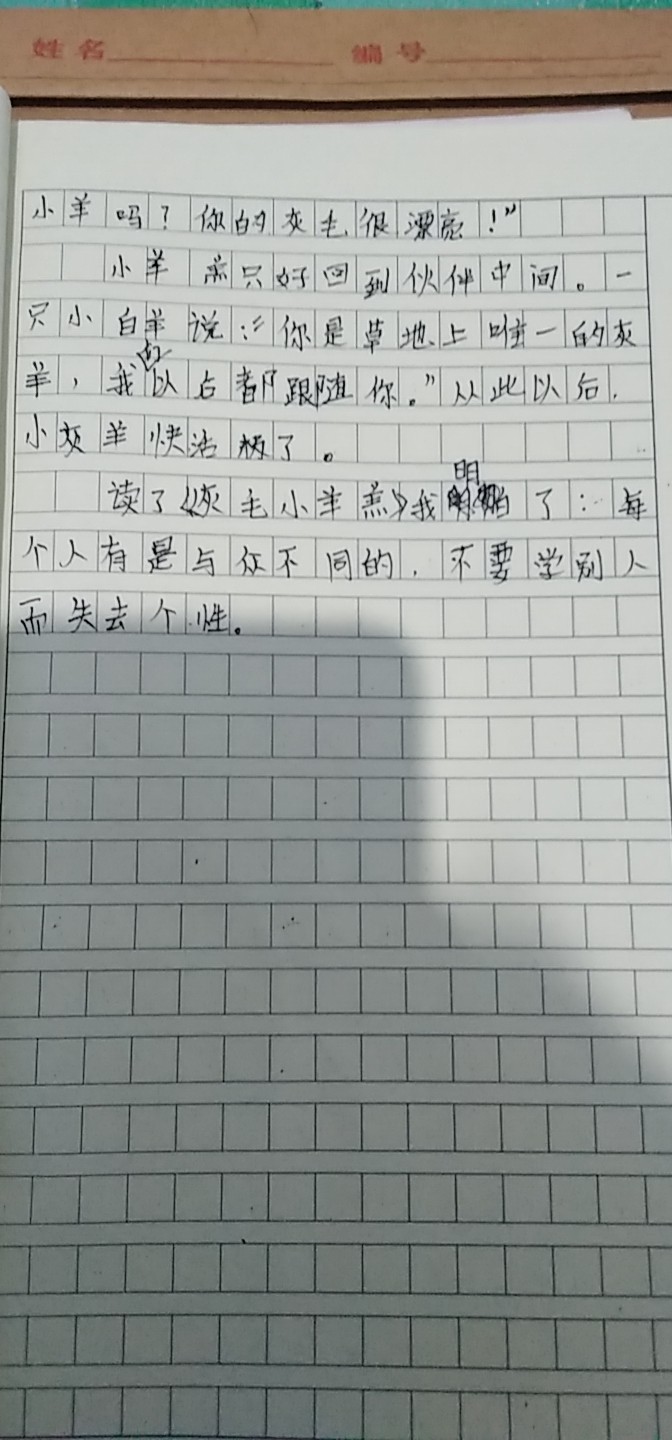 姓名 编号
小羊吗？你的灰毛很漂亮！”
小羊羔只好回到伙伴中间。一
只小白羊说：“你是草地上唯一的灰
羊，我们以后都跟随你。”从此以后，
小灰羊快活极了。
读了《灰毛小羊羔》我明白了：每
个人有是与众不同的，不要学别人
而失去个性。